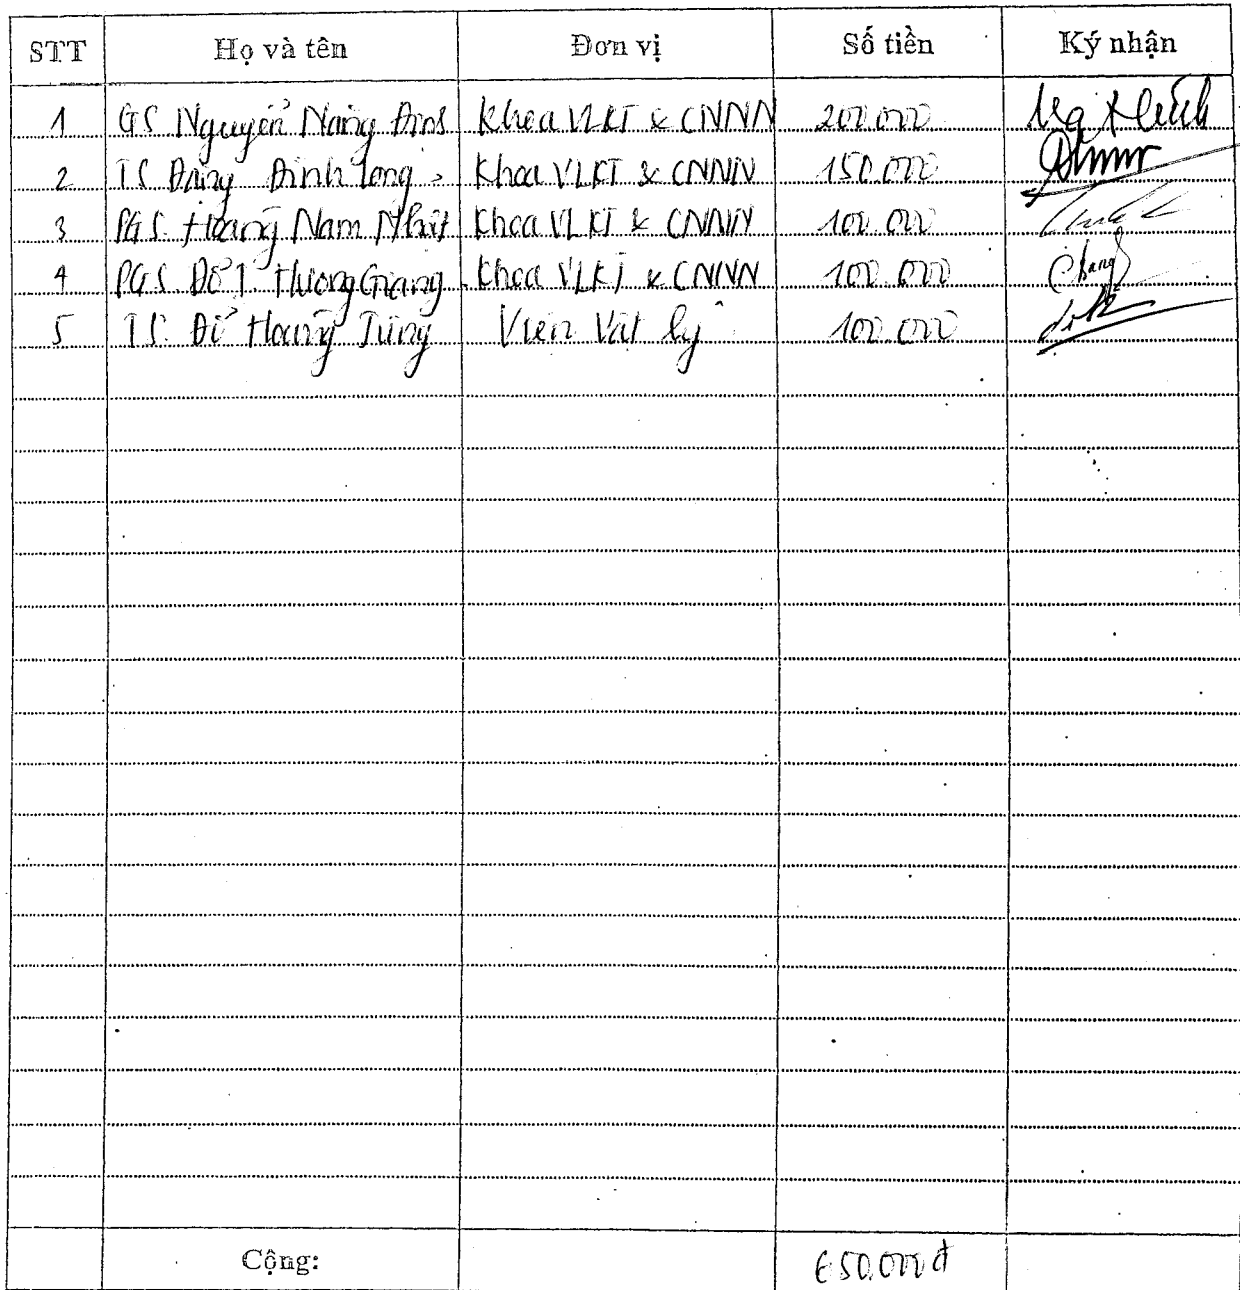 STT Họ và tên Đơn vị Số tiền Ký nhận
1 GS Nguyễn Năng Định Khoa VLKT & CNNN 200.000
2 TS Đặng Đình Long Khoa VLKT & CNNN 150.000
3 PGS. Hoàng Nam Nhật Khoa VLKT & CNNN 100.000
4 PGS Đỗ T Hương Giang Khoa VLKT & CNNN 100.000 Giang
5 TS. Đỗ Hoàng Tùng Viện Vật lý 100.000
Cộng: 650.000đ